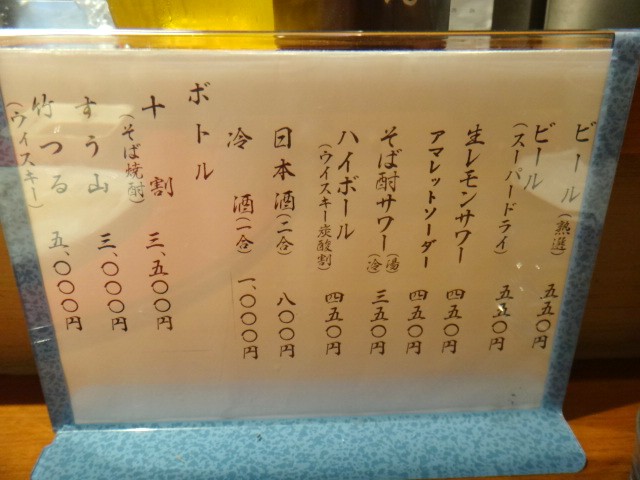 ビール(熟選) 五五〇円
ビール(スーパードライ) 五五〇円
生レモンサワー 四五〇円
アマレットソーダー 四五〇円
そば酎サワー(湯)(冷) 三五〇円
ハイボール(ウイスキー炭酸割) 四五〇円
日本酒(二合) 八〇〇円
冷酒(一合) 一、〇〇〇円
ボトル
十割(そば焼酎) 三、五〇〇円
すう山 三、〇〇〇円
竹つる(ウイスキー) 五、〇〇〇円